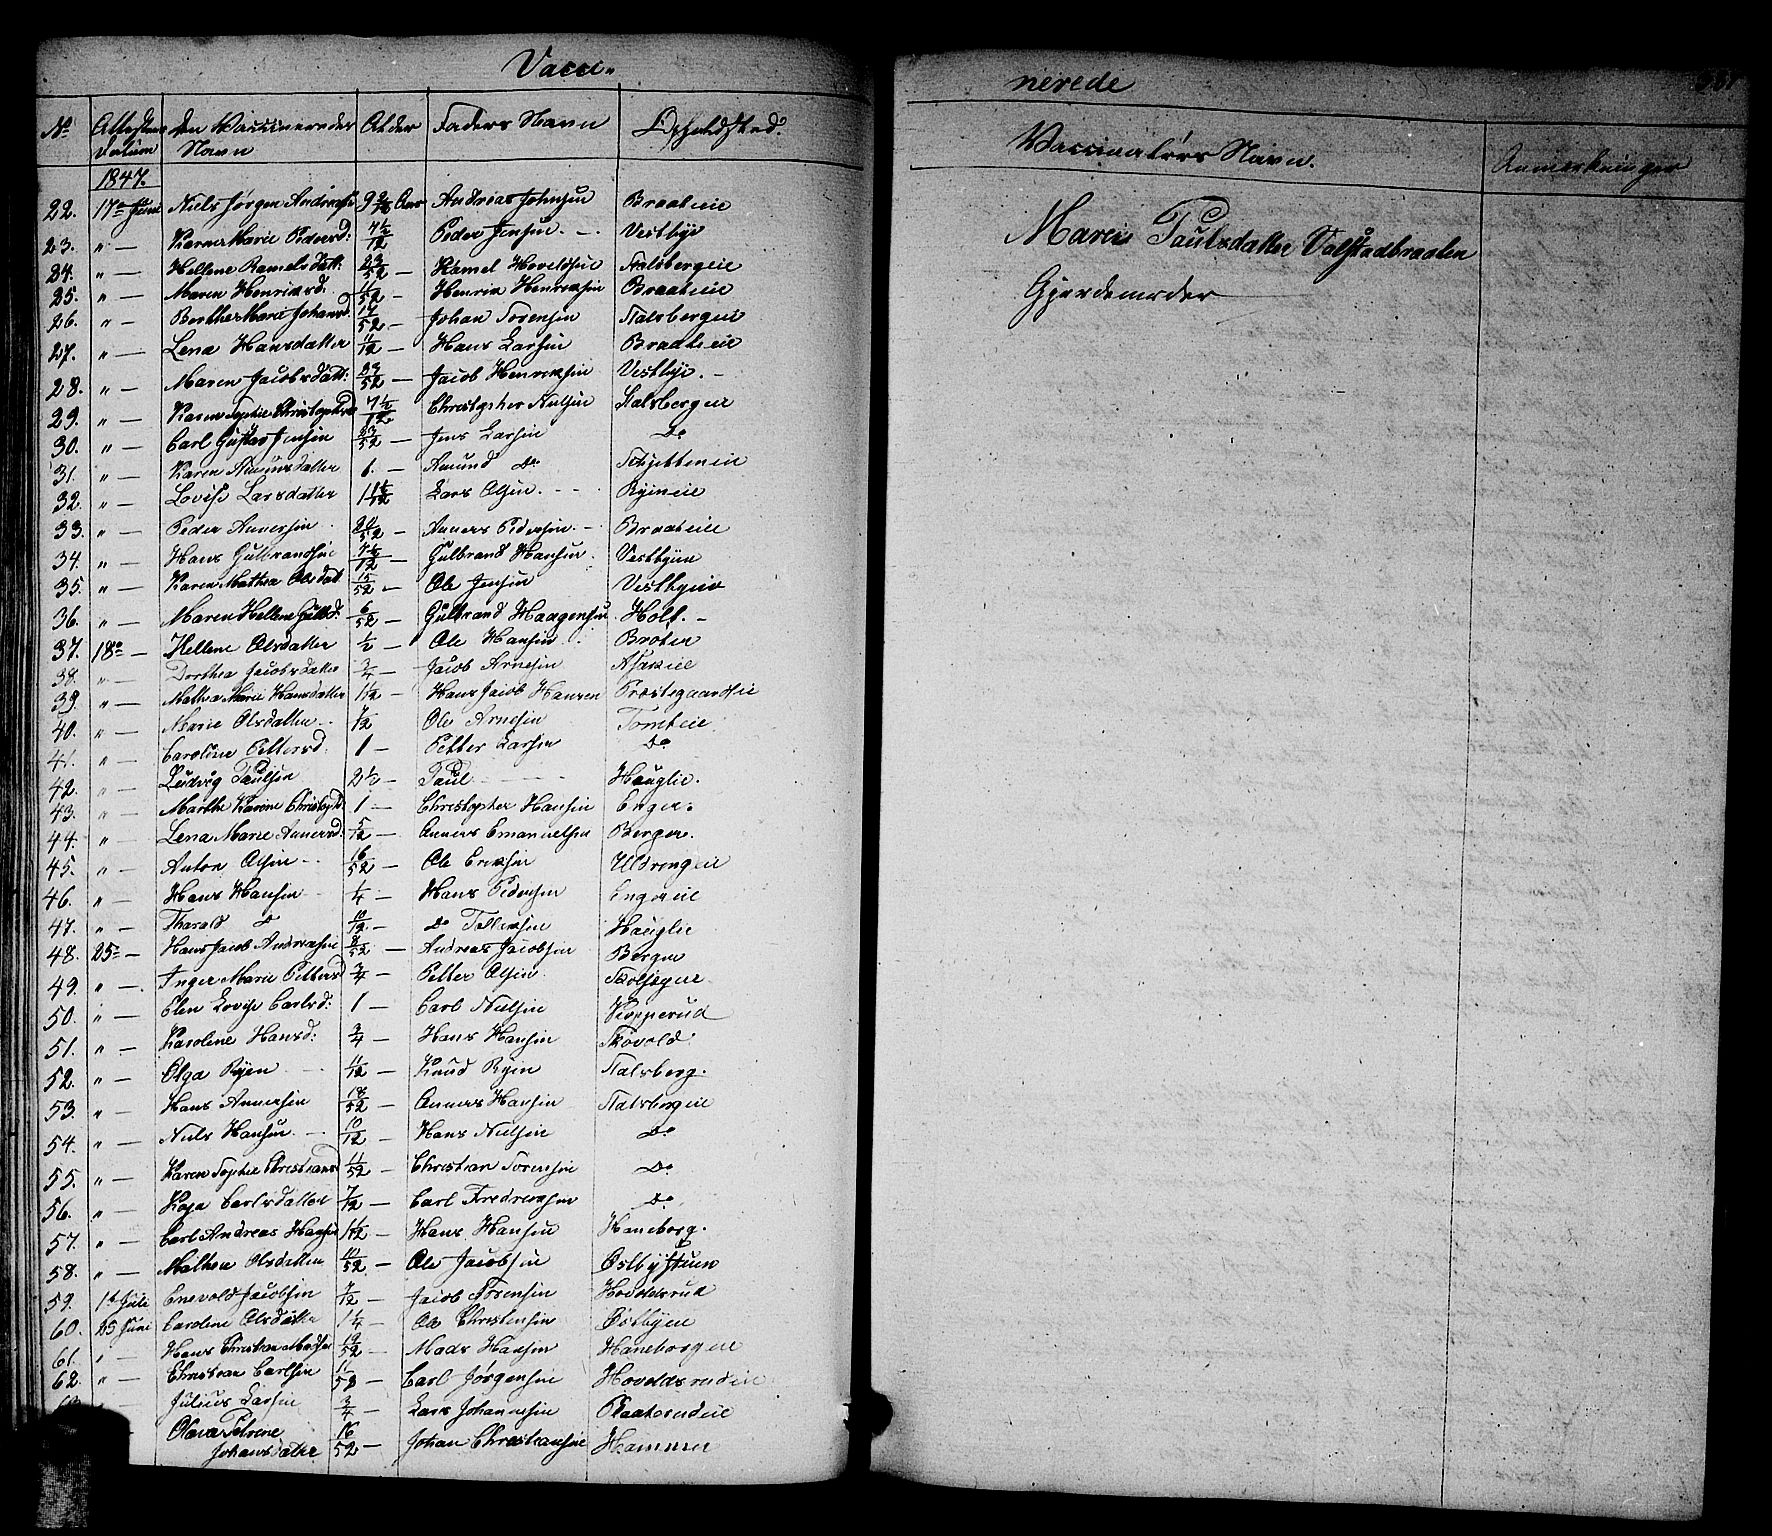 Vacci-
No Attestens Datum Den Vaccineredes Navn Alder Faders Navn Opholdsted.
1847.
22. 17de Juni Niels Jørgen Andreass Aar Andreas Johnsen Braateie
23. " — Karen Marie Pedersd: 7½/12 Peder Jensen. — Vestbye
24. " — Hellene Ramelsdatt: 23/52 — Ramel Hovelsen Stalsbergeie
25. " — Maren Henriksd: 11/52 — Henrik Henriksen Braateie
26. " — Berthe Marie Johansd: /52 — Johan Sorensen Stalsbergeie
27. " — Lena Hansdatter 11/12 — Hans Larsen Braateie
28. " — Maren Jacobsdatt: 33/52 — Jacob Henriksen Vestbye. —
29. " — Karen Sophie Christophersd 7½/12 Christopher Nielsen Stalsbergeie
30. " — Carl Gustav Jensen 23/52 — Jens Larsen Do
31. " — Karen Amundsdatter 1. — Amund Do Skjetteneie
32. " — Lovise Larsdatter Lars Olsen. — Ryeneie
33. " — Peder Andersen 20/52 — Anders Pedersen. — Braateie
34. " — Hans Gulbrandsen 7½/12 — Gulbrand Hansen. Vestbyen
35. " — Karen Mathea Olsdat 15/52 — Ole Jensen Vestbyeie
36. " — Maren Hellene Gulbd: 6/52 — Gulbrand Haagensen Holt. —
37. 18de — Hellene Olsdatter ½ — Ole Hansen Broten
38. " — Dorthea Jacobsdatter ¾ — Jacob Arnesen Asakeie
39. " — Mathea Marie Hansdatter 1½ — Hans Jacob Hansen Præstegaardseie
40. " — Marie Olsdatter — 7/12 Ole Arnesen Tomteie
41. " — Caroline Pettersd: 1 — Petter Larsen Do
42. " — Ludvig Paulsen 2½ — Paul — Hauglie.
43. " — Marthe Karine Christophd: 1 — Christopher Hansen Enger.
44. " — Lena Marie Andersd: 5/12 — Anders Emanuelsen Berger.
45. " — Anton Olsen — 16/52 — Ole Eriksen Uldrengeie
46. " — Hans Hansen ¼ — Hans Pedersen Engereie
47. " — Tharald Do 10/12 — Do Tollefsen Hauglie
48. 25de — Hans Jacob Andreasen 8/52 — Andreas Jacobsen Berger
49. " — Inger Marie Pettersd ¾ — Petter Olsen
50. " — Elen Lovise Carlsd: 1 — Carl Nielsen Kopperud
51. " — Karolene Hansd: ¾ — Hans Hansen Skovold
52. " — Olga Ryen — 11/12 — Knud Ryen Stalsberg.
53. " — Hans Andersen 18/52 — Anders Hansen Stalsbergeie
54. " — Niels Hansen — 10/12 — Hans Nielsen Do
55. " — Karen Sophie Christiansd 11/52 — Christian Sorensen Do
56. " — Kaja Carlsdatter 7/12 — Carl Fredriksen Do
57. " — Carl Andreas Hansen — Hans Hansen Haneborg.
58. " — Mathea Olsdatter 10/52 — Ole Jacobsen Østbystuen
59. 1st Juli Enevold Jacobsen 7/12 — Jacob Sorensen Hovdsrud
60. 25 Juni Caroline Olsdatter 1¼ — Ole Christensen Østbyeie
61. " — Hans Christian Madsen 19/52 — Mads Hansen Haneborgeie
62. " — Christian Carlsen — Carl Jørgensen
Julius Larsen ¾ — Lars Johannesen
Olava Petrine
Johansdatter 16/52 — Johan Christiansen Hammer
nerede
Vaccinatørs Navn. Anmerkninger
Maria Paulsdatter Valstadbraaten
Gjordemoder